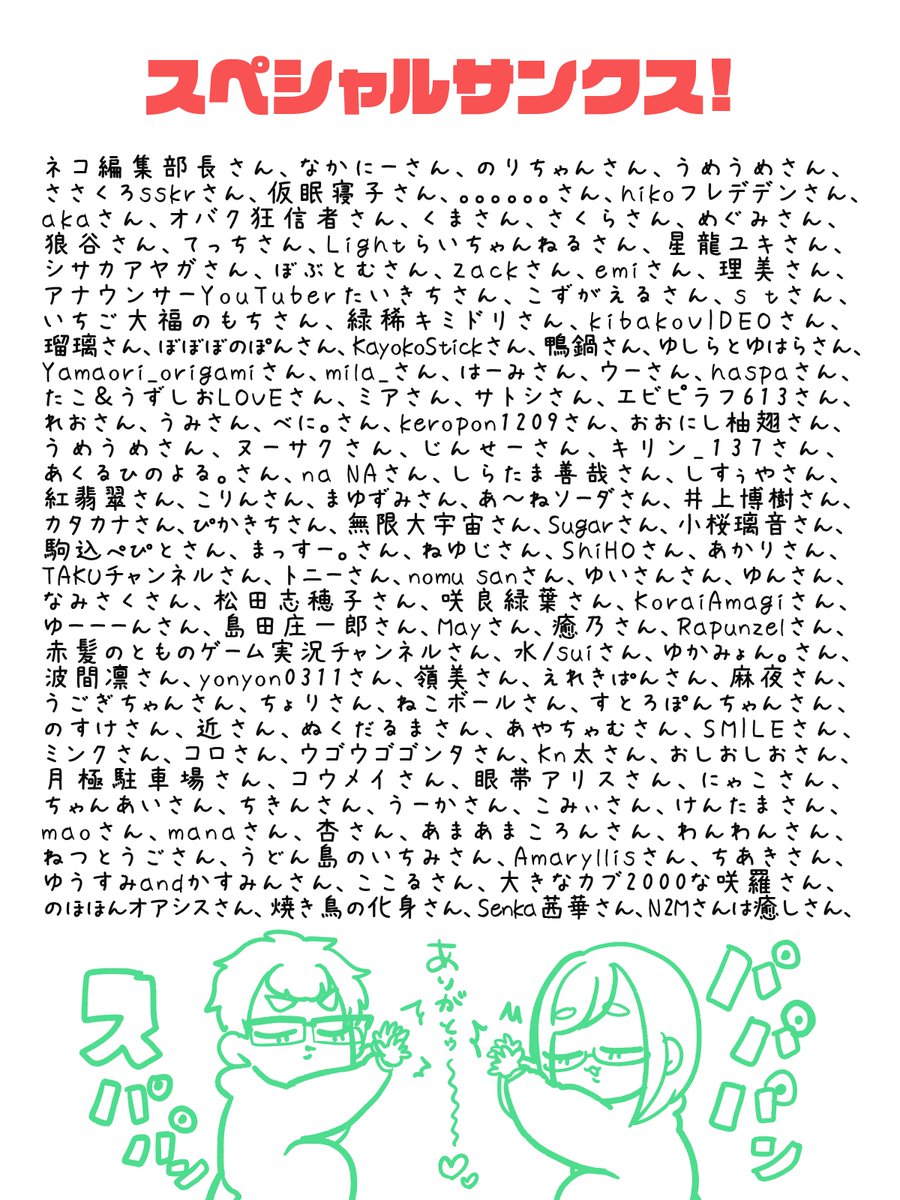 スペシャルサンクス!
ネコ編集部長さん、なかにーさん、のりちゃんさん、うめうめさん、
ささくろsskrさん、仮眠寝子さん、。。。。。。さん、hikoフレデデンさん、
akaさん、オバク狂信者さん、くまさん、さくらさん、めぐみさん、
狼谷さん、てっちさん、Lightらいちゃんねるさん、星龍ユキさん、
シサカアヤガさん、ぼぶとむさん、zackさん、emiさん、理美さん、
アナウンサーYouTuberたいきちさん、こずがえるさん、s tさん、
いちご大福のもちさん、緑稀キミドリさん、kibakoVIDEOさん、
瑠璃さん、ぼぼぼのぽんさん、KayokoStickさん、鴨鍋さん、ゆしらとゆはらさん、
Yamaori_origamiさん、mila_さん、はーみさん、ウーさん、haspaさん、
たこ&うずしおLOVEさん、ミアさん、サトシさん、エビピラフ613さん、
れおさん、うみさん、べに。さん、keropon1209さん、おおにし柚翅さん、
うめうめさん、ヌーサクさん、じんせーさん、キリン_137さん、
あくるひのよる。さん、na NAさん、しらたま善哉さん、しすぅやさん、
紅翡翠さん、こりんさん、まゆずみさん、あ〜ねソーダさん、井上博樹さん、
カタカナさん、ぴかきちさん、無限大宇宙さん、Sugarさん、小桜璃音さん、
駒込ぺぴとさん、まっすー。さん、ねゆじさん、ShiHOさん、あかりさん、
TAKUチャンネルさん、トニーさん、nomu sanさん、ゆいさんさん、ゆんさん、
なみさくさん、松田志穂子さん、咲良緑葉さん、KoraiAmagiさん、
ゆーーーんさん、島田庄一郎さん、Mayさん、癒乃さん、Rapunzelさん、
赤髪のとものゲーム実況チャンネルさん、水/suiさん、ゆかみょん。さん、
波間凛さん、yonyon0311さん、嶺美さん、えれきぱんさん、麻夜さん、
うごぎちゃんさん、ちょりさん、ねこボールさん、すとろぽんちゃんさん、
のすけさん、近さん、ぬくだるまさん、あやちゃむさん、SMILEさん、
ミンクさん、コロさん、ウゴウゴゴンタさん、Kn太さん、おしおしおさん、
月極駐車場さん、コウメイさん、眼帯アリスさん、にゃこさん、
ちゃんあいさん、ちきんさん、うーかさん、こみぃさん、けんたまさん、
maoさん、manaさん、杏さん、あまあまころんさん、わんわんさん、
ねつとうごさん、うどん島のいちみさん、Amaryllisさん、ちあきさん、
ゆうすみandかすみんさん、ここるさん、大きなカブ2000な咲羅さん、
のほほんオアシスさん、焼き鳥の化身さん、Senka茜華さん、N2Mさんは癒しさん、
ありがとゥ〜
スパパン
パパパン